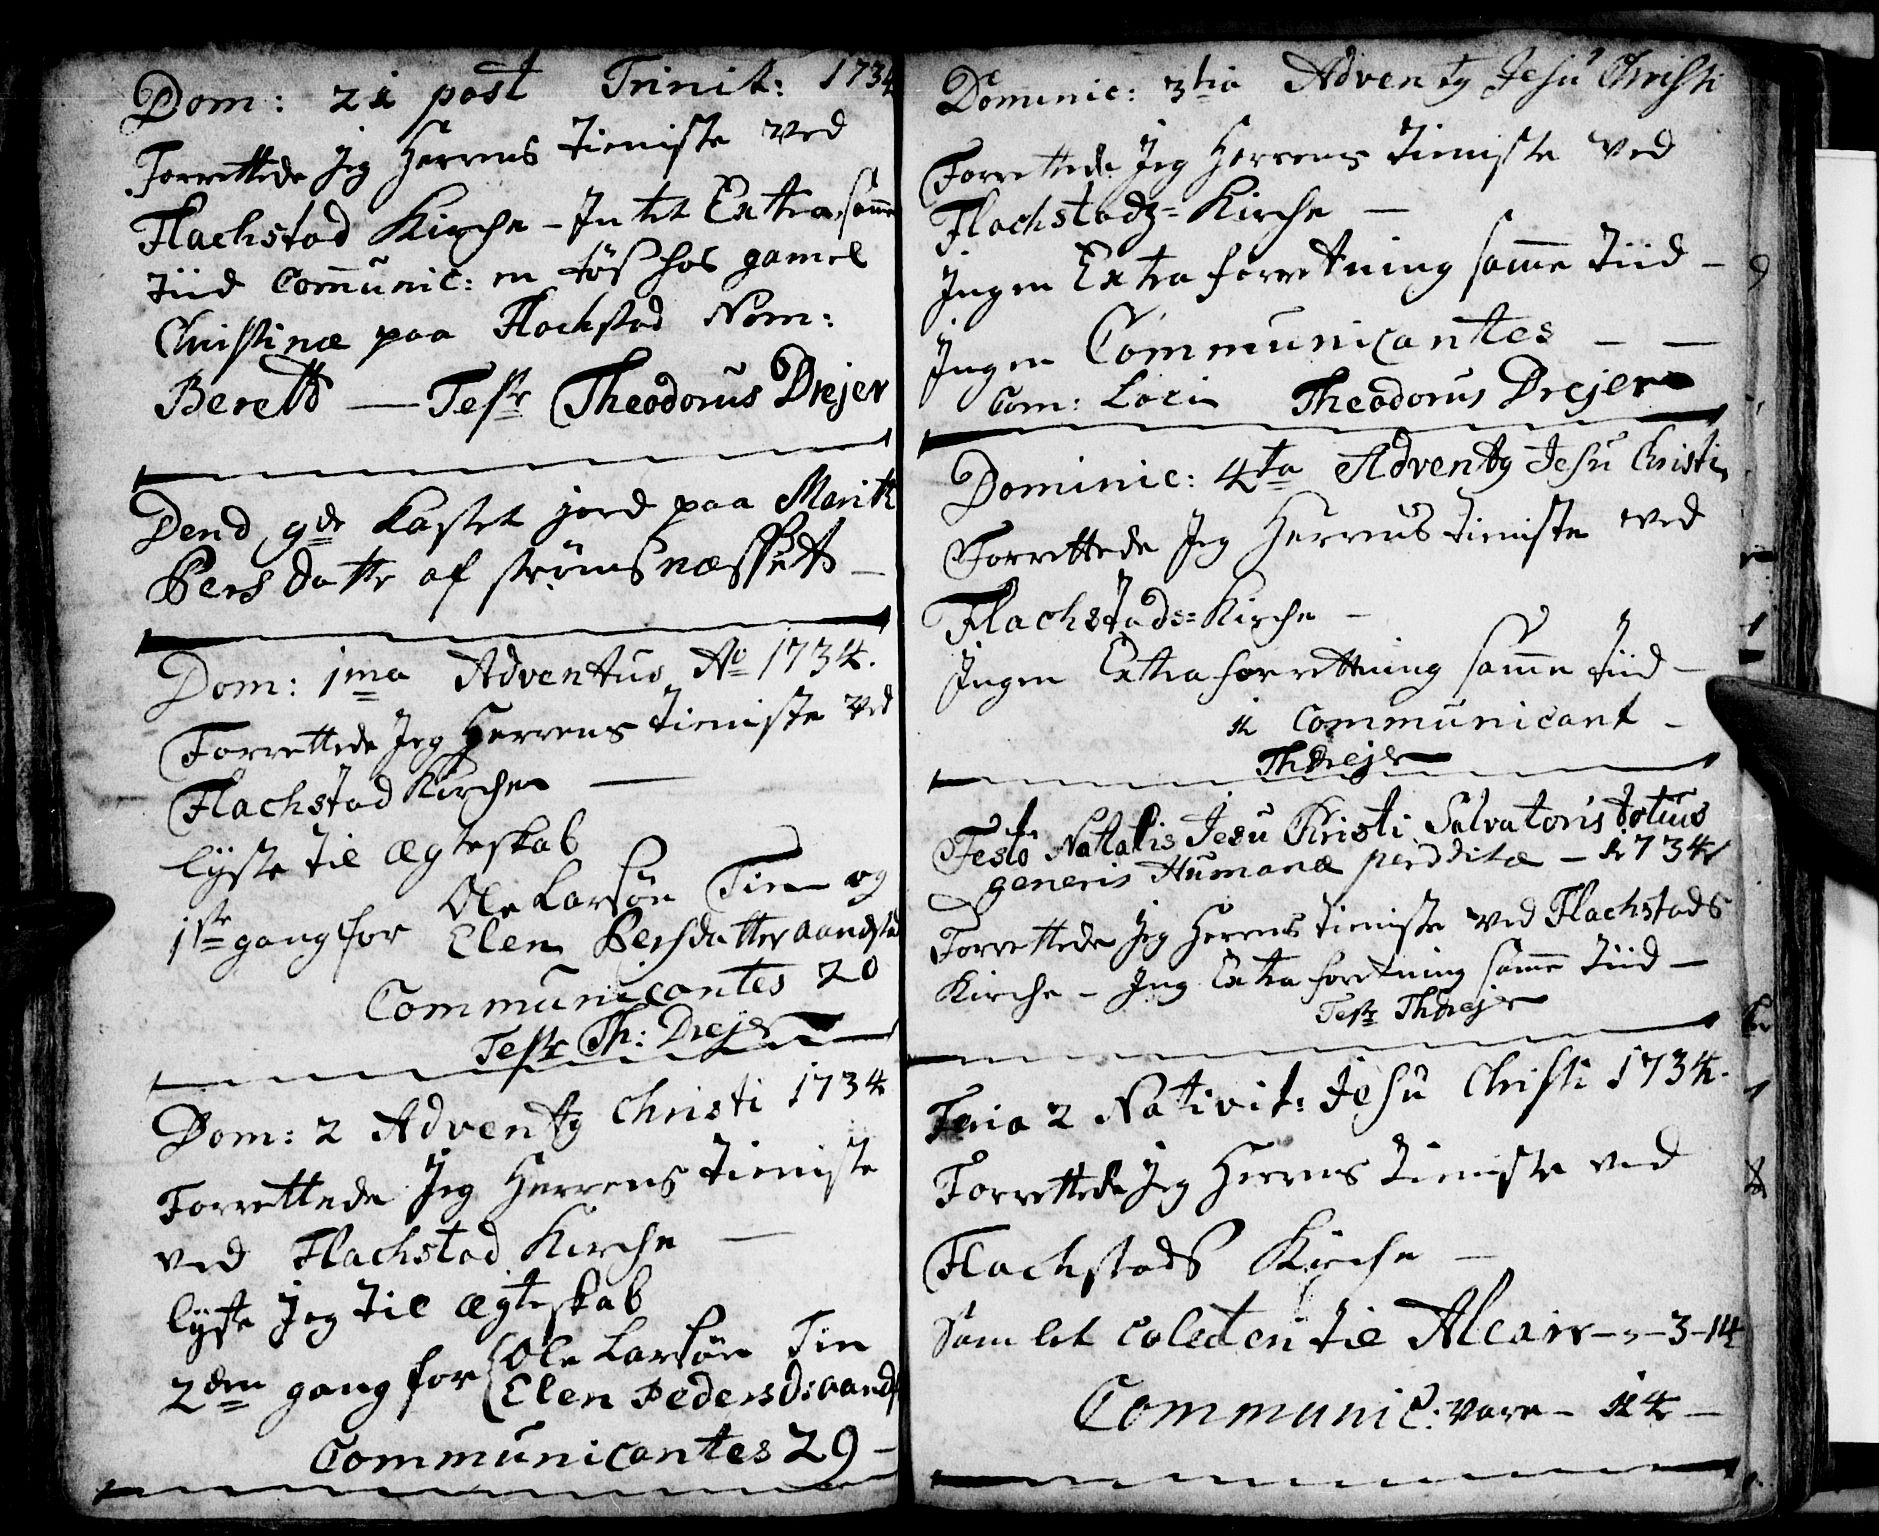 Dom: 21 post Trinit: 1734
Forrettede Jeg Herrens Tieniste ved
Flachstad Kirche - Intet Extra, samme
Tiid Communic: en tøs hos gamel
Christinæ paa Flachstad Nom:
Berett — Teste Theodorus Drejer
Dend 9de kastet jord paa Maritt
Persdatter af strømsnæssett —
Dom: 1ma Adventus Ao 1734.
Forrettede Jeg Herrens Tieniste ved
Flachstad Kirche —
lyste til ægteskab
1ste gang for Ole Larsøn Tin og
Elen Persdatter aandstad
Communicantes 20
Teste Th: Drejer
Dom: 2 Adventg Christi 1734
Forrettede Jeg Herrens Tieniste
ved Flachstad Kirche —
lyste Jeg til ægteskab
2den gang for Ole Larsøn Tin
Elen Peders D: aands
Communicantes 29 -
Dominic: 3tia Adventg Jesu Christi
Forrettede Jeg Herrens Tieniste ved
Flachstadz = Kirche —
Ingen Extra forretning samme Tiid -
Ingen Communicantes - —
Com: Loci Theodorus Drejer
Dominic: 4ta Adventg Jesu Christi
Forrettede Jeg Herrens Tieniste ved
Flachstads = Kirche -
Ingen Extra forrettning samme tiid -
1 communicant -
ThDrejer
Festo Natalis Jesu Christi Salvatoris totius
generis Humanæ perdditæ - 1734
Forrettede Jeg Herrens tieniste ved Flachstads
Kirche - Ing Extra foretning samme Tiid -
Teste ThDrejer
Feria 2 Nativit: Jesu Christi 1734.
Forrettede Jeg Herrens Tieniste ved
Flachstads Kirche -
Samlet colecten til Alcair - , - 3 - 14
Communic: vare - 14 -